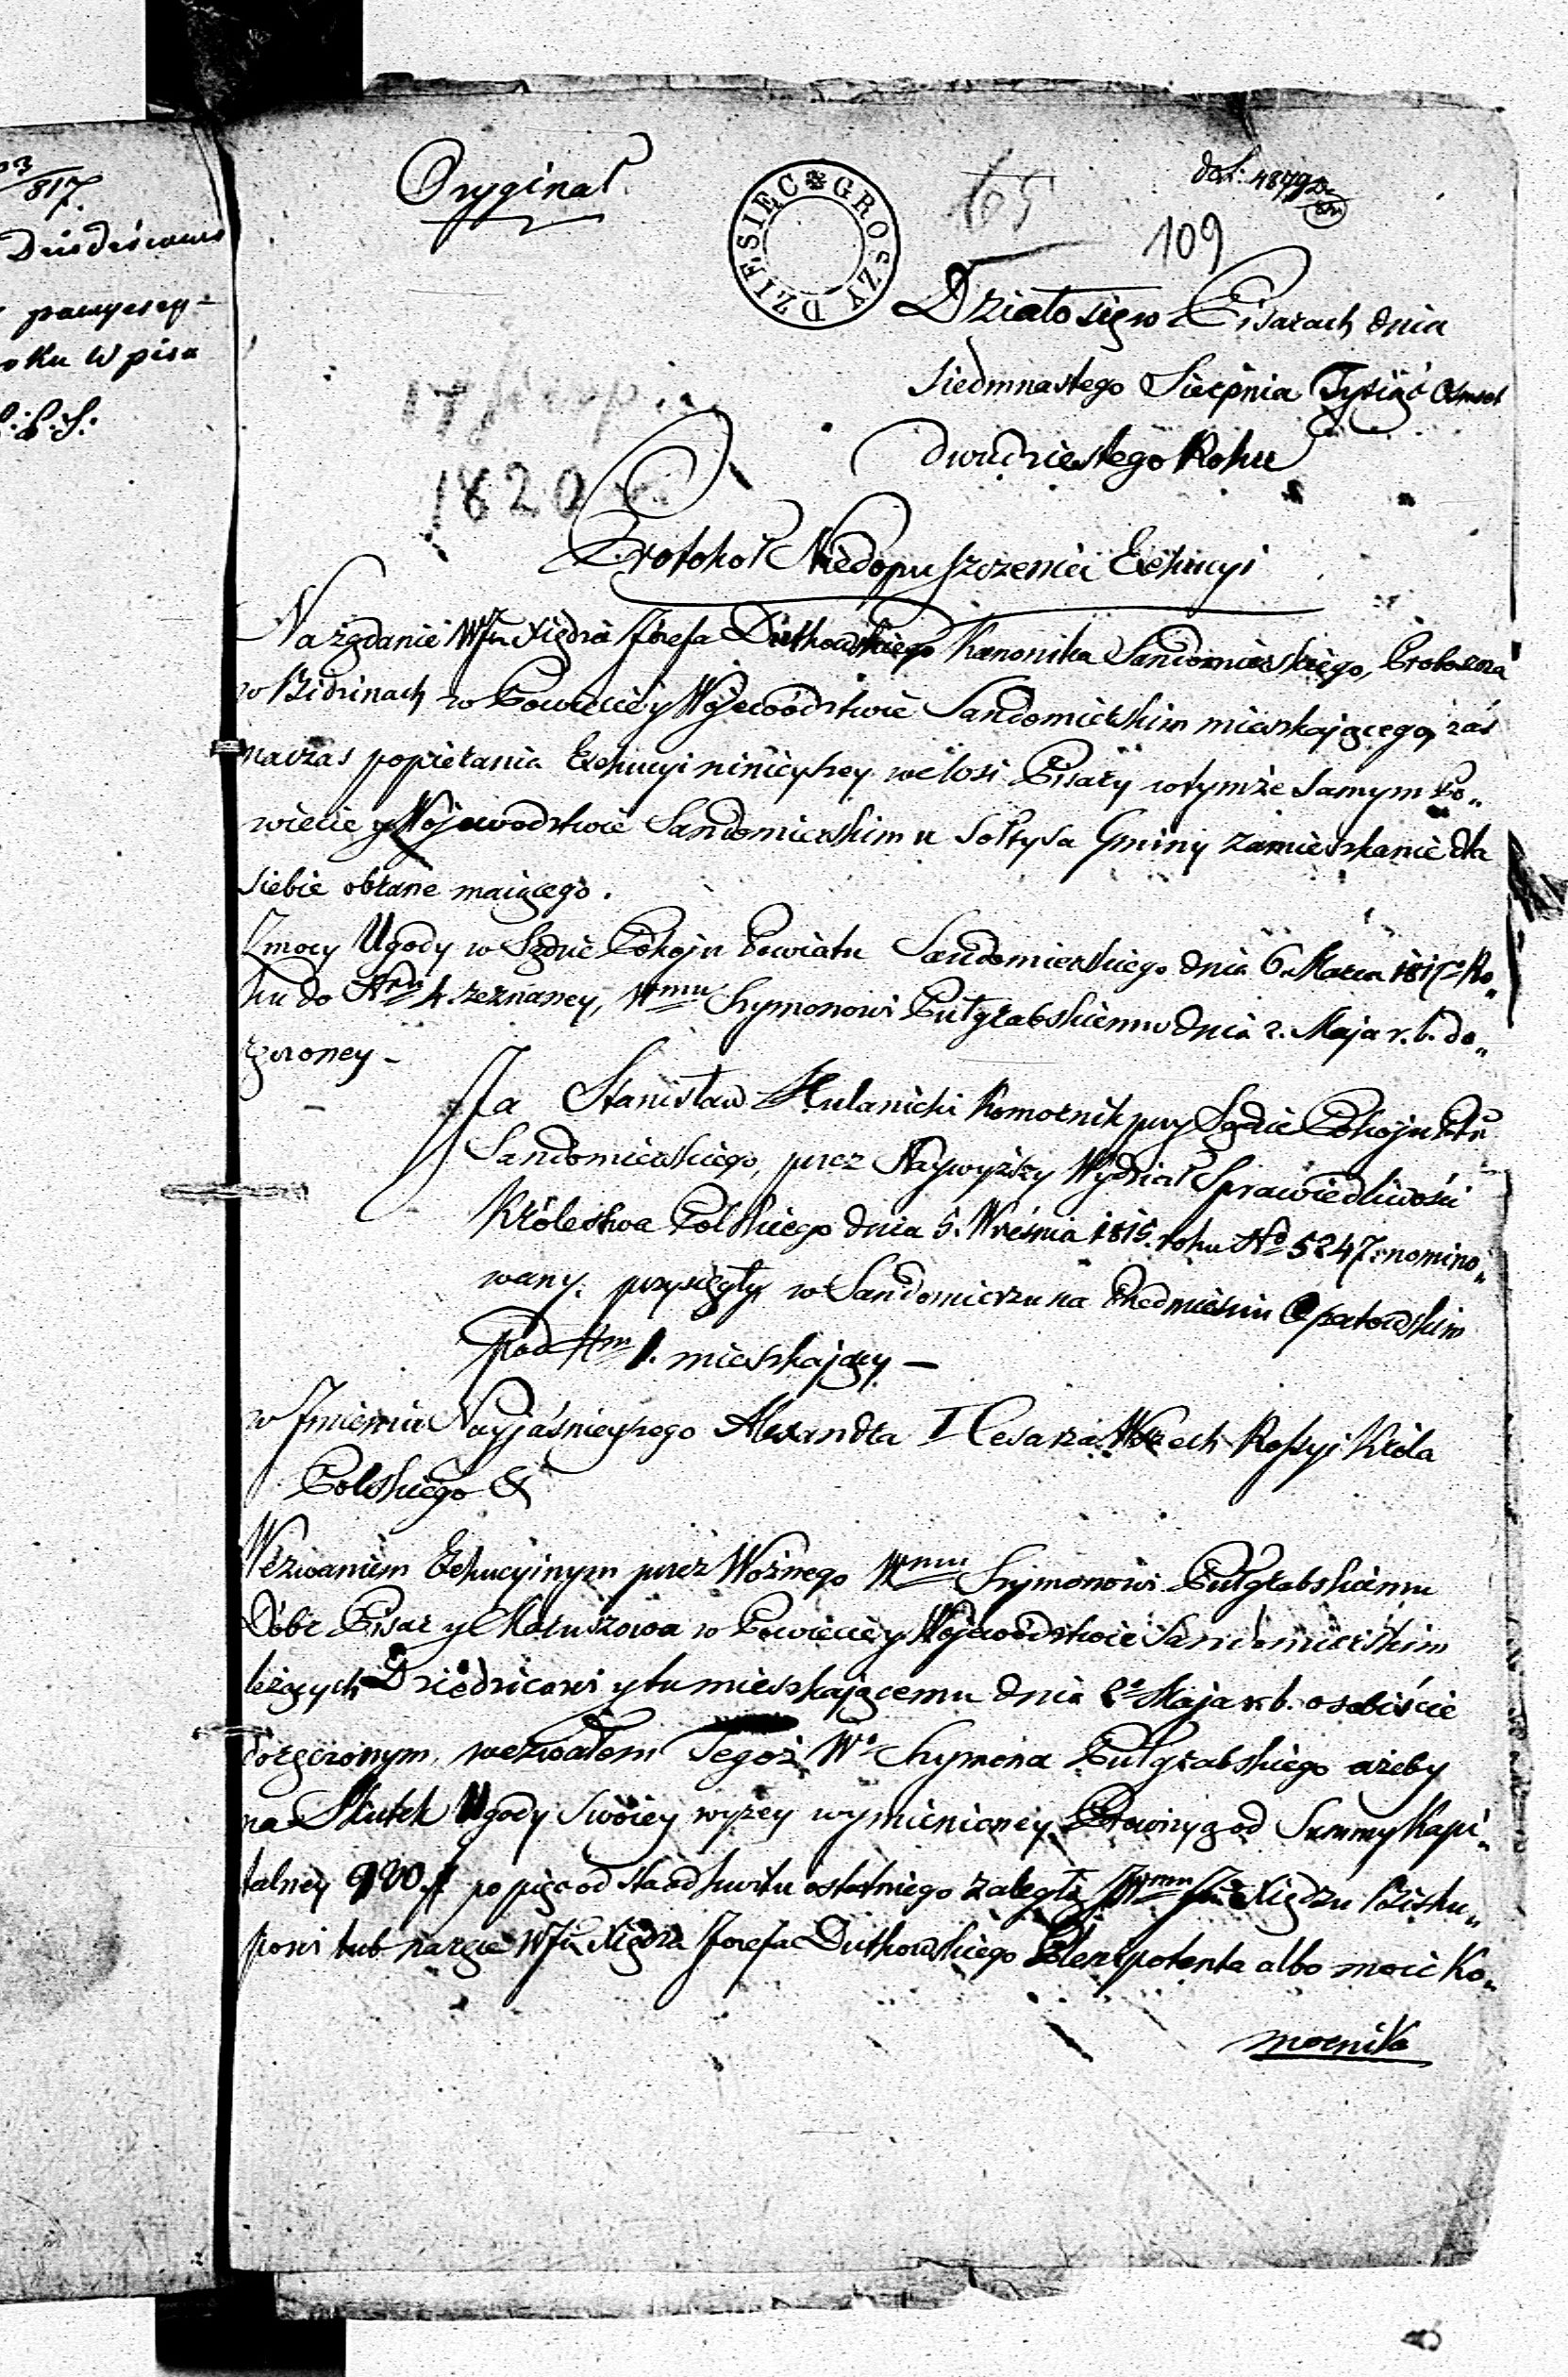 817.
pawyerey-
oku Wpisu
Oryginał.
DZIESIĘĆ GROSZY
165
109
Działo się w Pisarach dnia
siedmnastego Sierpnia Tysiąć Ośmset
dwudziestego Roku
17 Sierpnia
1820
Protokół Niedopuszczenia Exekucyi
Na żądanie WJX Xiędza Józefa Dutkowskiego Kanonika Sandomirskiego, Proboszcza
w Bidzinach w Powiecie y Wojewódzstwie Sandomierskim mieszkającego, zaś
naczas popierania Exekucyi ninieyszey we Wsi Pisary w tymże samym Po„
wiecie y Wojewodztwie Sandomierskim u Sołtysa Gminy zamieszkanie dla
siebie obrane maiącego.
Z mocy Ugody w Sądzie Pokoju Powiatu Sandomierskiego dnia 6. Marca 1817o Ro„
ku do Nru 4. zeznaney, Wmu Szymonowi Pułgrabskiemu dnia 2. Maja r. b. do„
ręczoney –
Ja Stanisław Hulanicki Komornik przy Sądzie Pokoju Pttu
Sandomierskiego, przez Naywyższy Wydział Sprawiedliwości
Królestwa Polskiego dnia 5. Września 1815. roku No 5247. nomino„
wany, przysięgły w Sandomierzu na Przedmieściu Opatowskim
pod Nrm 1. mieszkający –
w Jmieniu Nayjaśnieyszego Alexandra I Cesarza Wszech Rossyi Króla
Polskiego &
Wezwaniem Exekucyinym przez Woźnego Wmu Szymonowi Pułgrabskiemu
Dóbr Pisar y Maruszowa w Powiecie y Wojewódzstwie Sandomierskim
leżących Dziedzicowi y tu mieszkającemu dnia 2o Maja r. b. osobiście
doręczonym, wezwałem Tegoż Wo Szymona Pułgrabskiego ażeby
na Skutek Ugody swoiey wyżey wymienioney Prowizyą od Summy Kapi„
talney po pięć od sta od kwitu ostatniego zaległą Xiędzu Bisku„
powi lub na ręce WJX Xiędza Józefa Dutkowskiego Plenipotenta albo mnie Ko„
mornika